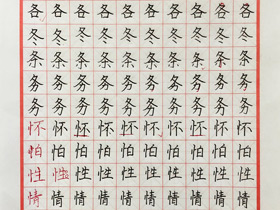 各各各各各各各各各
冬冬冬冬冬冬冬冬冬
条条条条条条条条条
务务务务务务务务务
务务务务务务务务务
怀怀怀怀怀怀怀怀怀
怕怕怕怕怕怕怕怕怕
性性性性性性性性性
情情情情情情情情情